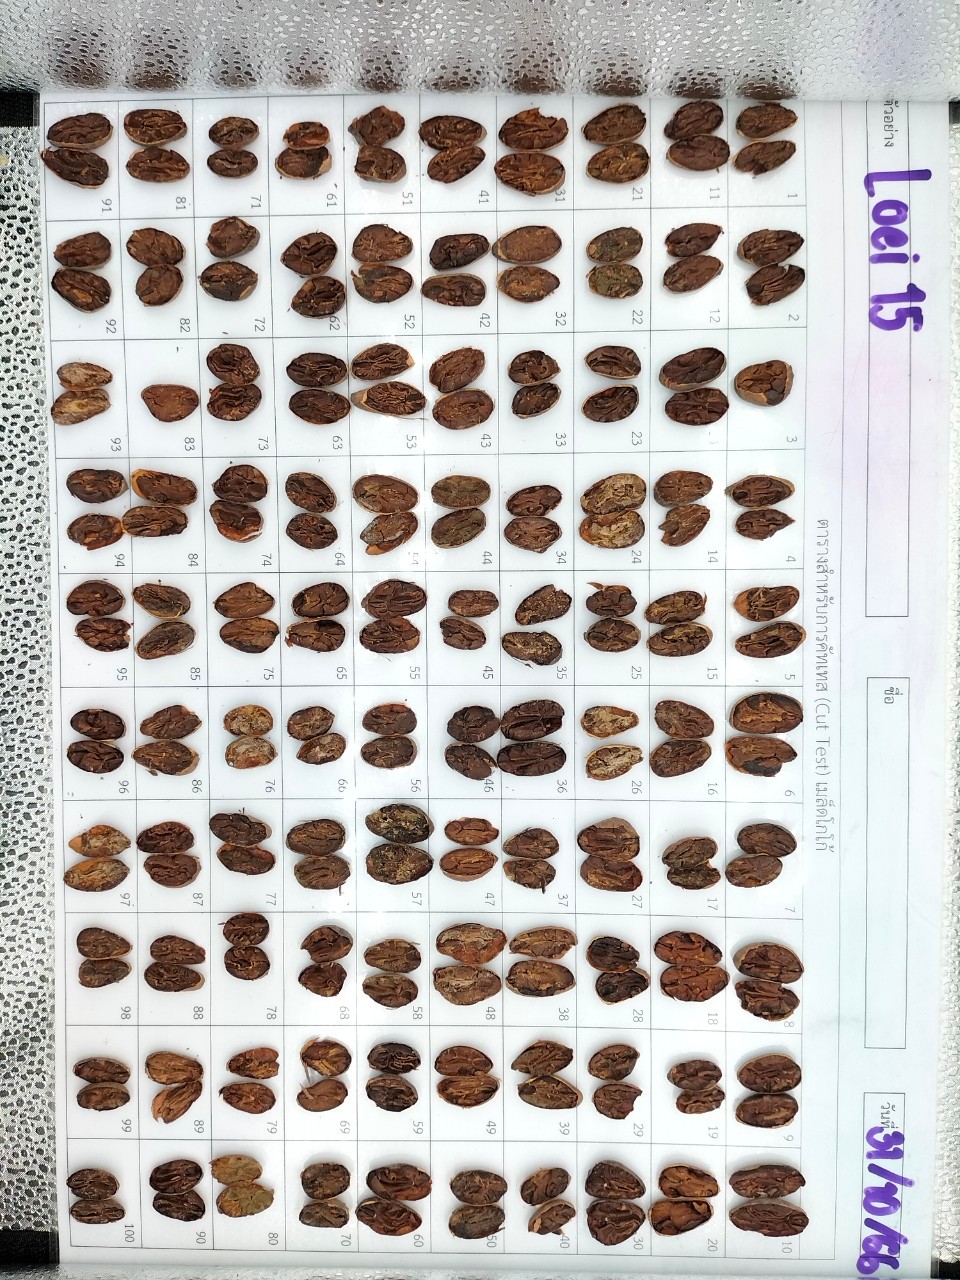 ตัวอย่าง Loei 15 ชื่อ วันที่ 31/10/66
ตารางสำหรับการคัทเทส (Cut Test) เมล็ดโกโก้
1 2 3 4 5 6 7 8 9 10
11 12 14 15 16 17 18 19 20
21 22 23 24 25 26 27 28 29 30
31 32 33 34 35 36 37 38 39 40
41 42 43 44 45 46 47 48 49 50
51 52 53 54 55 56 57 58 59 60
61 62 63 64 65 66 67 68 69 70
71 72 73 74 75 76 77 78 79 80
81 82 83 84 85 86 87 88 89 90
91 92 93 94 95 96 97 98 99 100